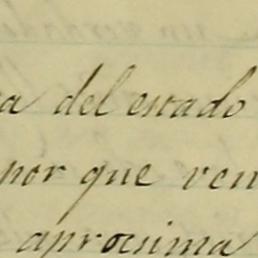 a del estado
por que ven
aprocsima